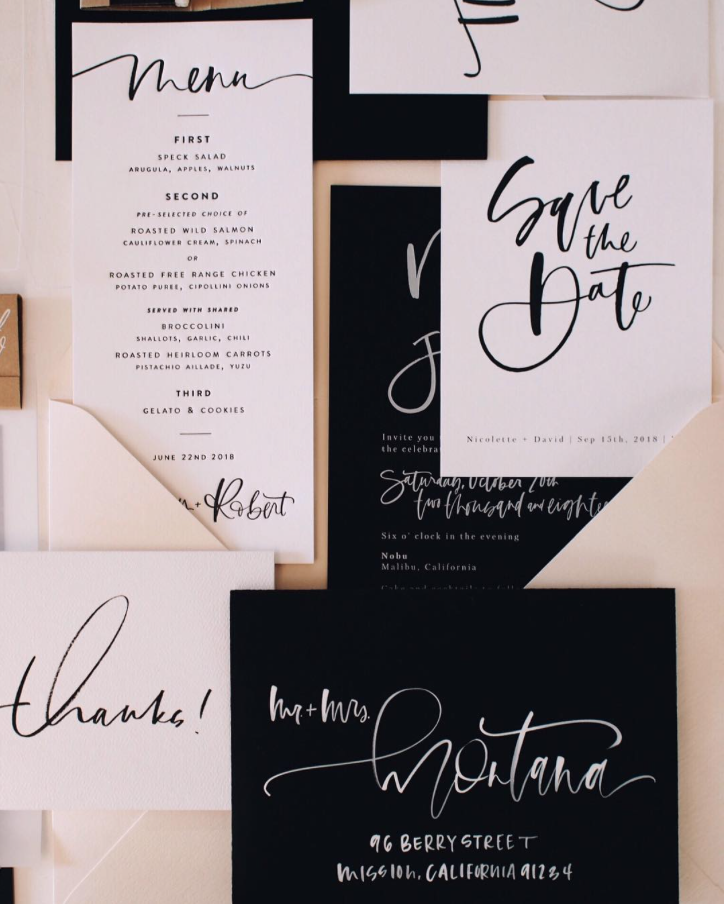 menu
FIRST
SPECK SALAD
ARUGULA, APPLES, WALNUTS
SECOND
PRE-SELECTED CHOICE OF
ROASTED WILD SALMON
CAULIFLOWER CREAM, SPINACH
OR
ROASTED FREE RANGE CHICKEN
POTATO PUREE, CIPOLLINI ONIONS
SERVED WITH SHARED
BROCCOLINI
SHALLOTS, GARLIC, CHILI
ROASTED HEIRLOOM CARROTS
PISTACHIO AILLADE, YUZU
THIRD
GELATO & COOKIES
JUNE 22ND 2018
+ Robert
Save
the
Date
Nicolette + David | Sep 15th, 2018 |
Invite you
the celebra
Saturday, October 20th
two thousand and eightee
Six o' clock in the evening
Nobu
Malibu, California
Cake and cocktails to foll
thanks!
mr. + mrs.
Montana
96 BERRY STREET
MISSION, CALIFORNIA 91234